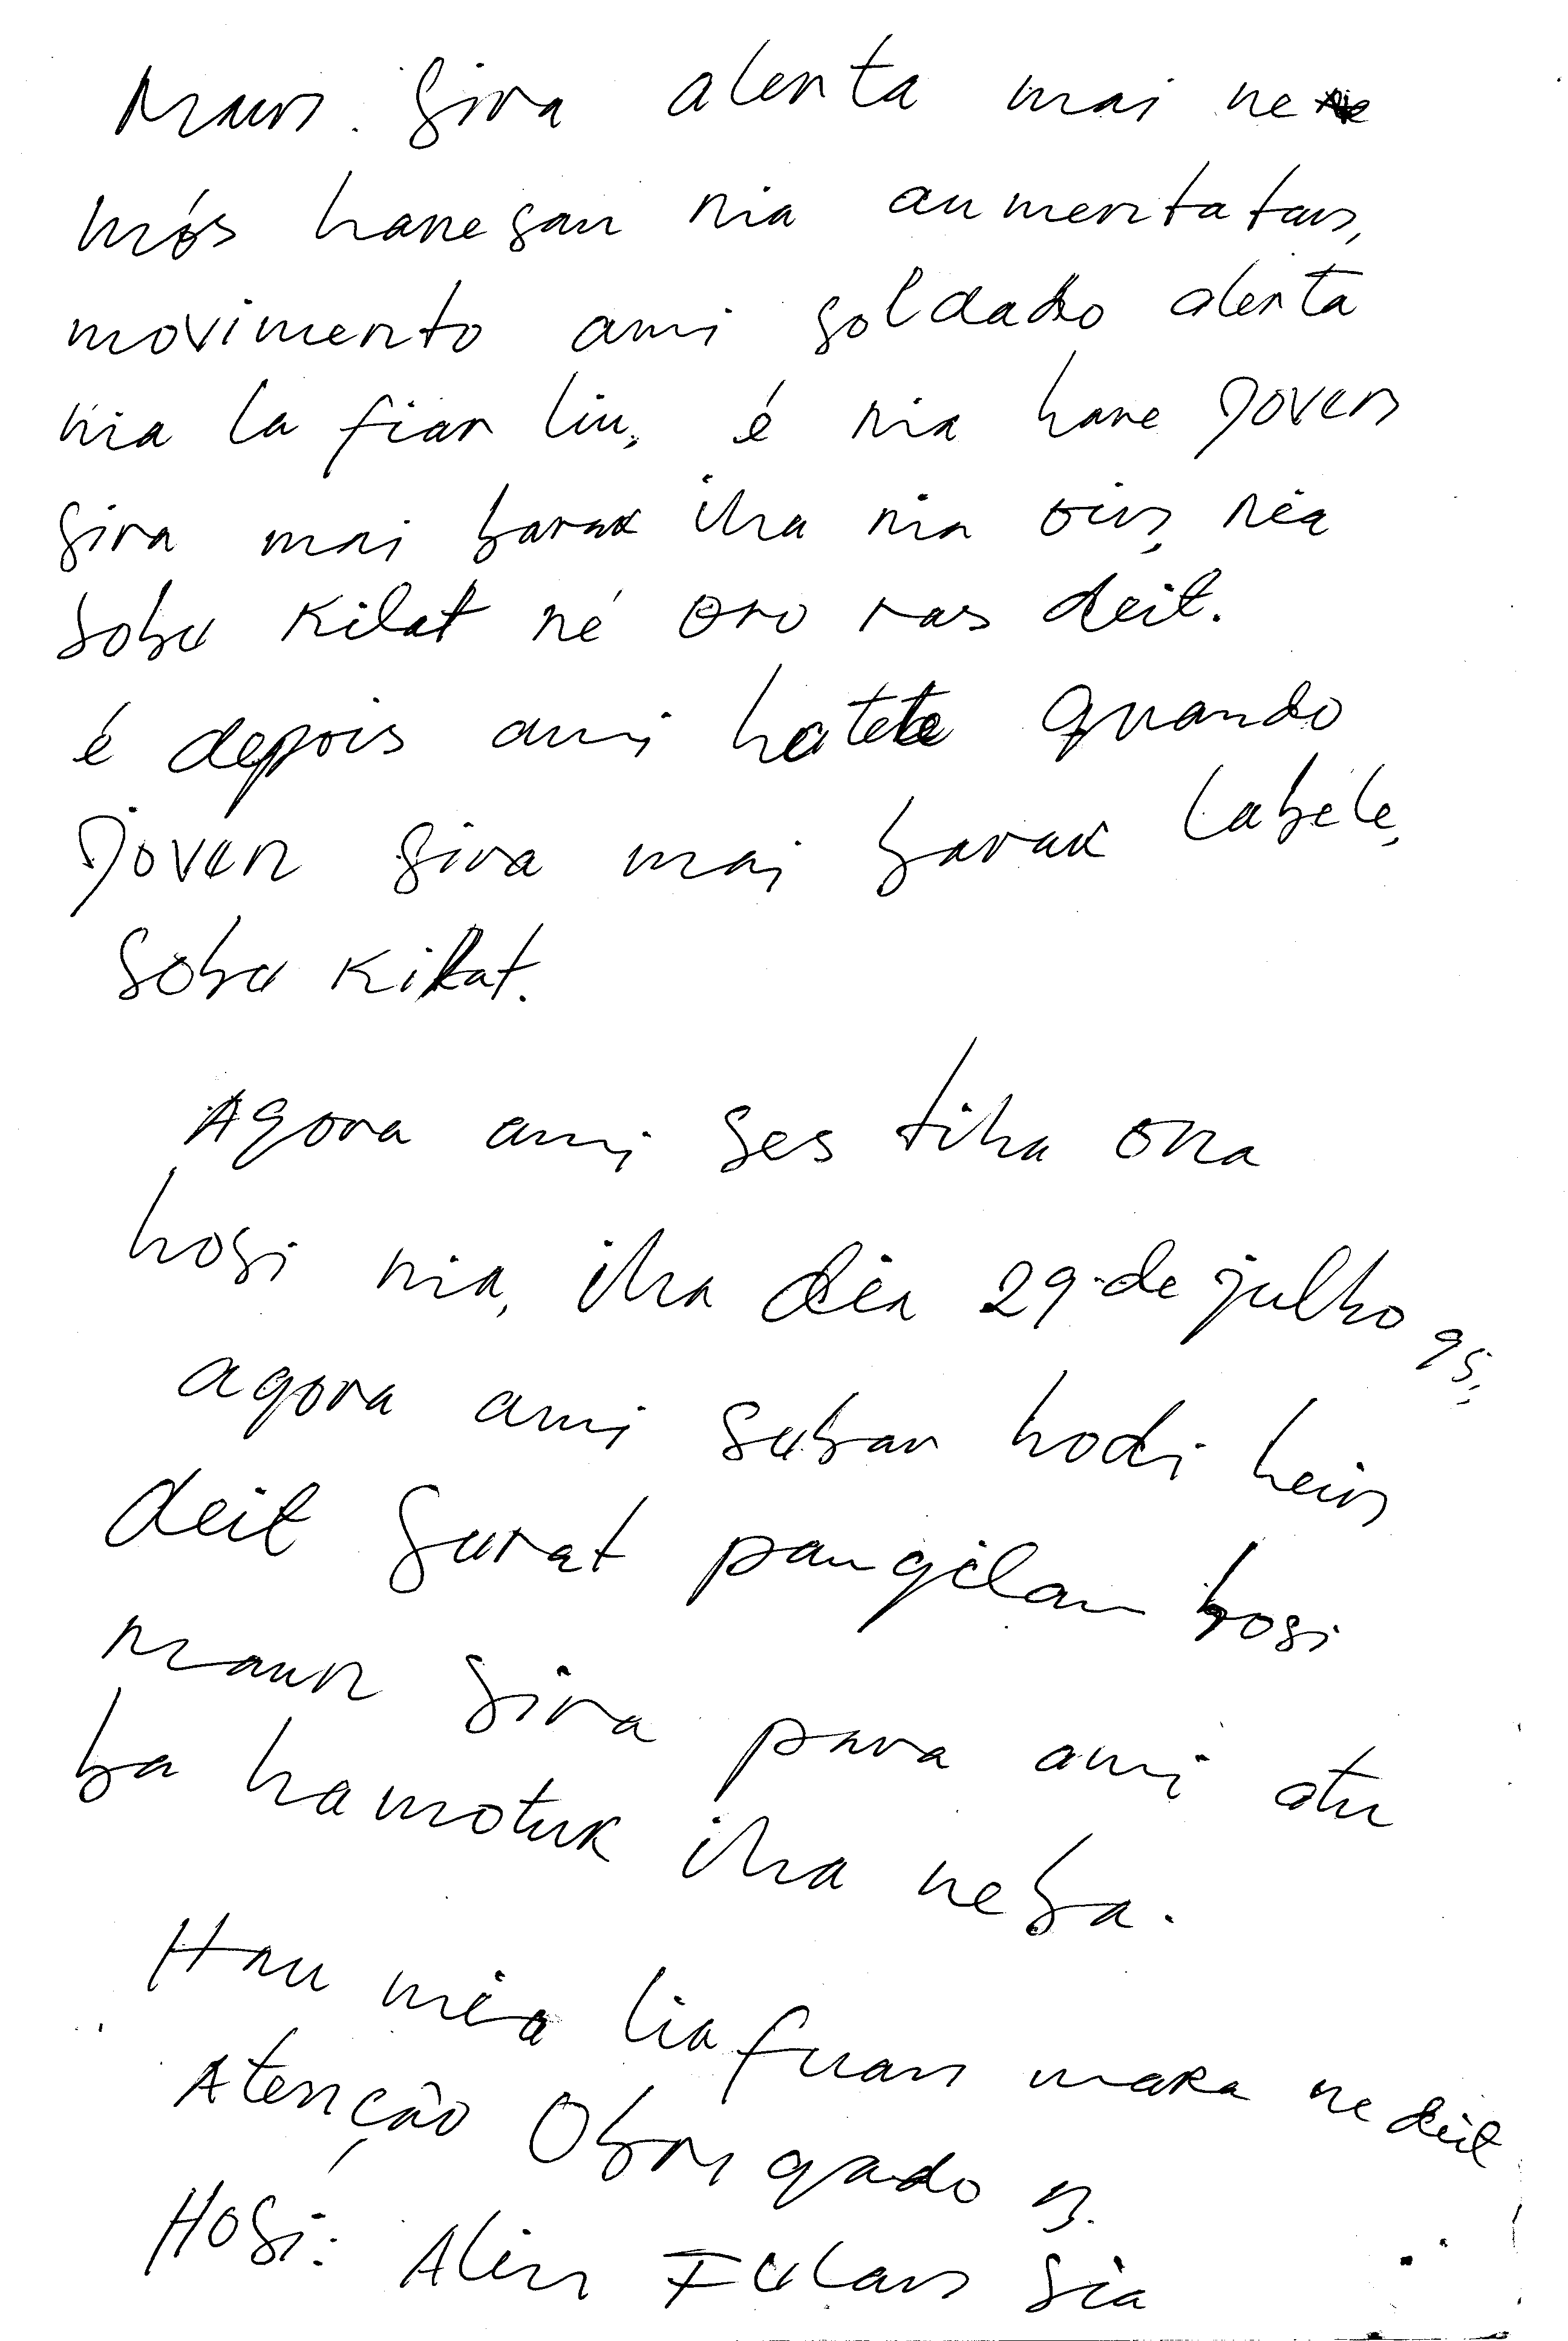 Maun sira alerta mai ne
mós hanesan nia aumentatan,
movimento ami soldado alerta
nia la fiar liu, é nia hare joven
sira mai barak iha nia oin, nia
sobu kilat né oro ras deit.
é depois ami hatete quando
joven sira mai barak labele,
sobu kilat.
Agora ami ses tiha ona
hosi nia, iha dia 29 de julho 95,
agora ami subar hodi hein
deit surat pangilan hosi
maun sira para ami atu
ba hamotuk iha neba.
Hau nia lia fuan maka ne deit
Atenção Obrigado n.
Hosi: Alin Fulan Sia